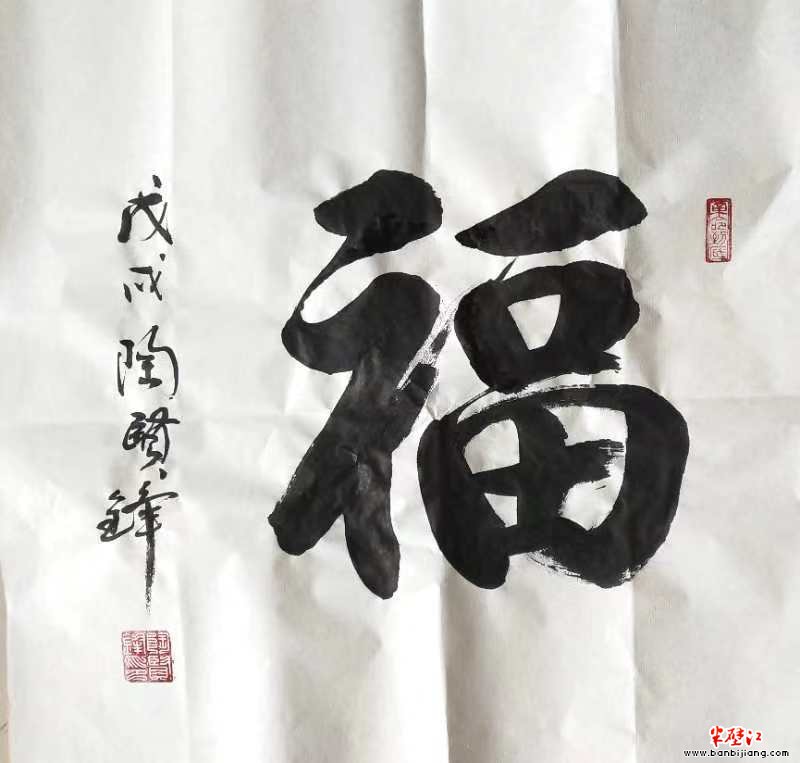 福
戊戌陶賢鋒
半壁江
www.banbijiang.com